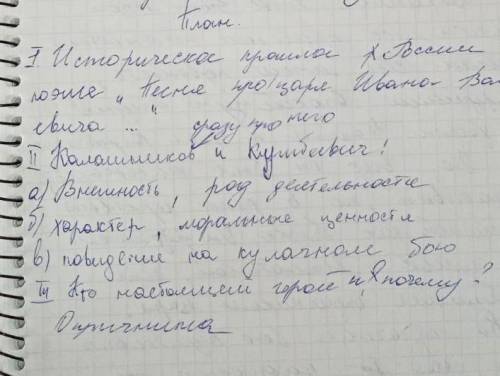 План.
I. Историческое прошлое России
поэме „Песня про царя Ивана Ва
сивича ..." сразу про него
II Калашников и Кирибеевич!
а) Внешность, род деятельности
б) характер, моральные ценности
в) поведение на кулачном бою
III Кто настоящем герой и почему?
Опричнина